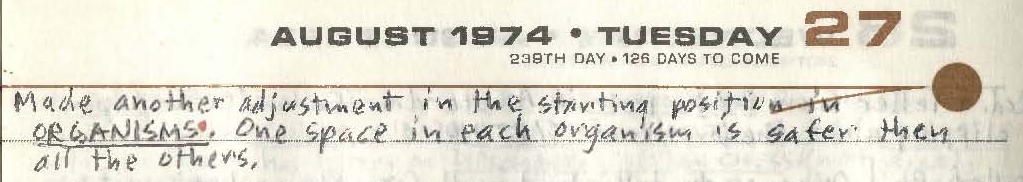 AUGUST 1974 • TUESDAY 27
239TH DAY • 126 DAYS TO COME
Made another adjustment in the starting position in
ORGANISMS. One space in each organism is safer then
all the others.